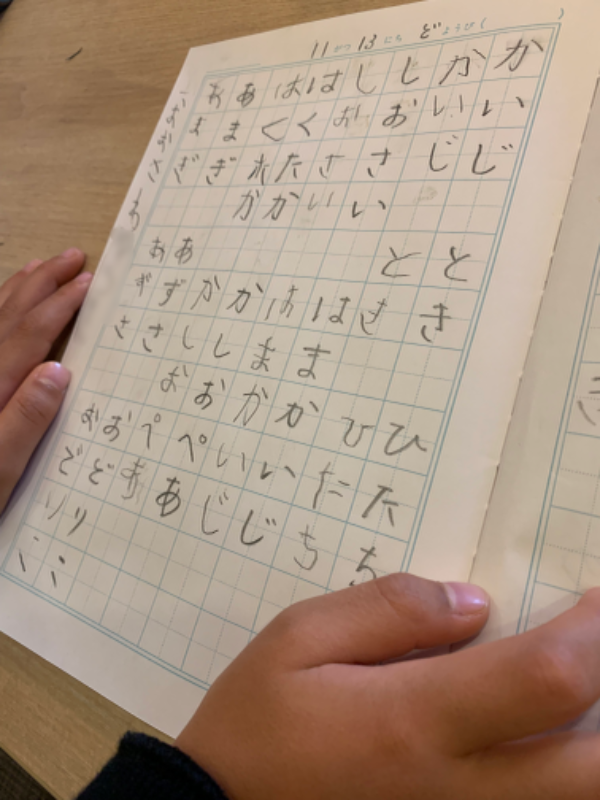 11がつ13にち どようび( )
かいじ とき ひたち
かいじ とき ひたち
しおさい はまかいじ
しおさい はまかいじ
はくたか かしおぺあ
はくたが かしおぺあ
あまぎ あずさ おどりこ
あまぎ あずさ おどりこ